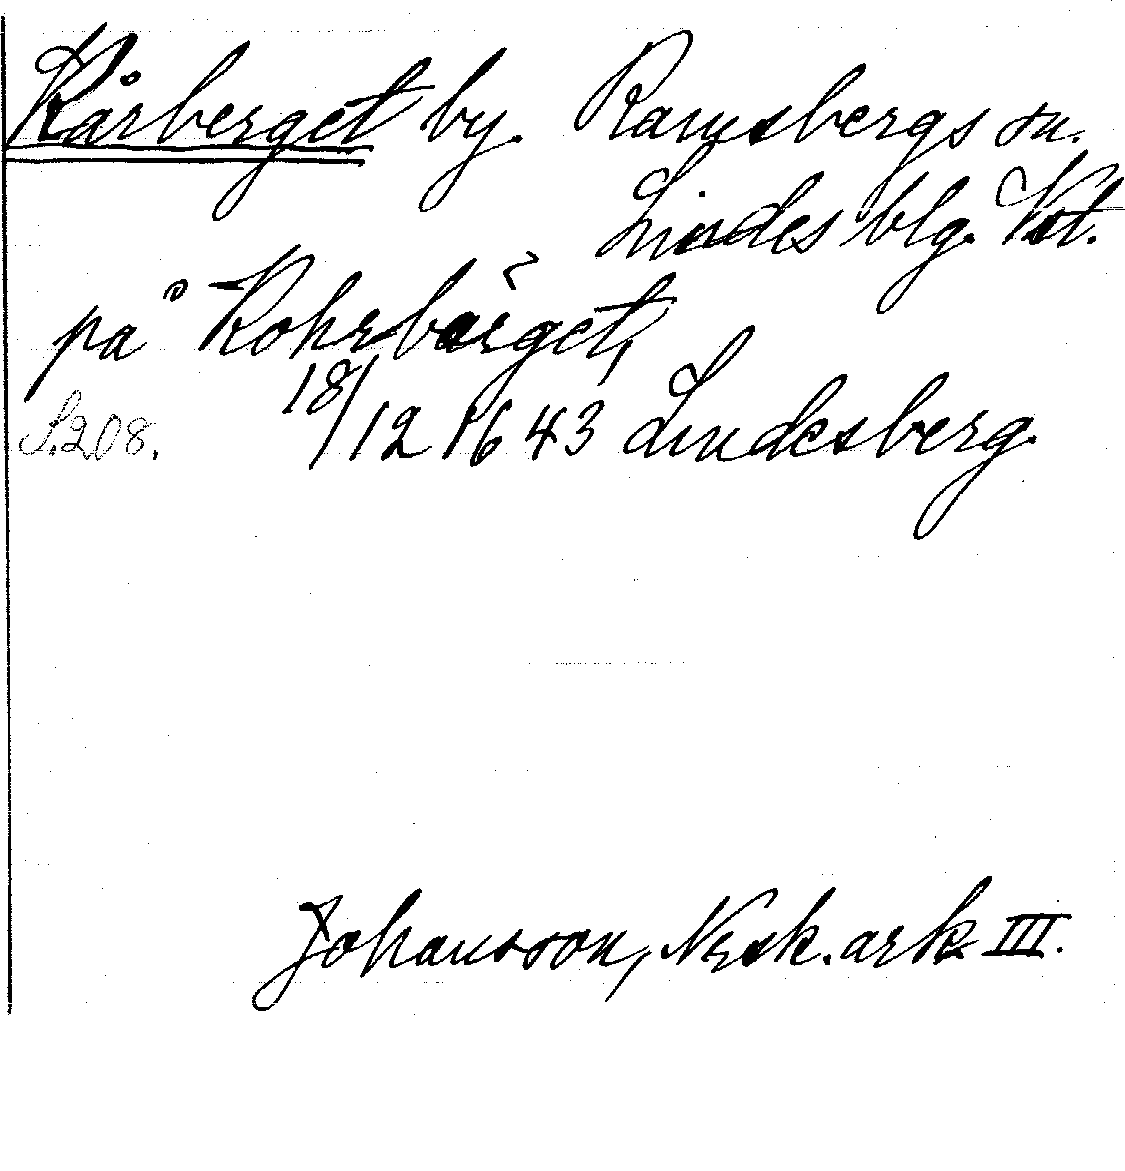 Kårberget by. Ramsbergs sn.
Lindes blg. Vst.
på Kohrbärget,
S. 208. 18/12 1643 Lindesberg.
Johansson, Nysk. ark III.